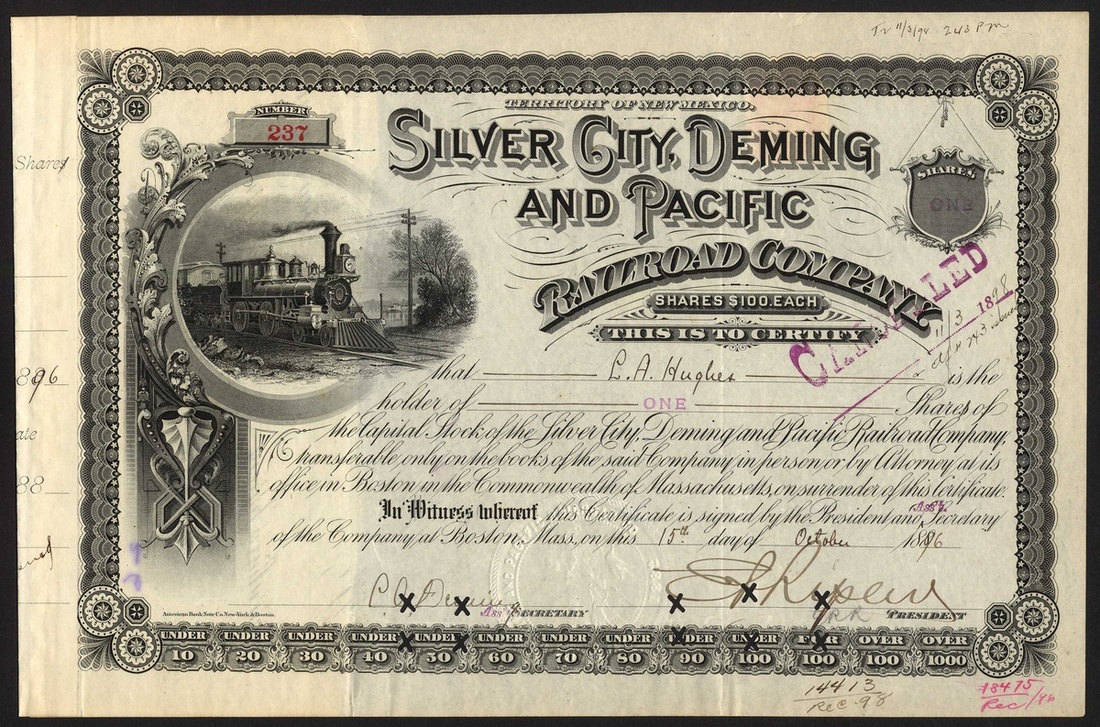 Tr 11/3/98 243 Pm
TERRITORY OF NEW MEXICO.
NUMBER
237
SILVER CITY, DEMING
AND PACIFIC
RAILROAD COMPANY
SHARES
ONE
SHARES $100. EACH
THIS IS TO CERTIFY
CANCELLED
11/3 1898
Shares
that L. A. Hughes is the
896
holder of ONE Shares of
the Capital Stock of the Silver City, Deming and Pacific Railroad Company,
transferable only on the books of the said Company in person or by Attorney at its
office, in Boston in the Commonwealth of Massachusetts, on surrender of this Certificate.
ate
88
In Witness whereof this Certificate is signed by the President and Asst. Secretary
of the Company at Boston, Mass., on this 15th day of October 1896
American Bank Note Co. New-York & Boston.
Asst SECRETARY
PRESIDENT
UNDER 10 UNDER 20 UNDER 30 UNDER 40 UNDER 50 UNDER 60 UNDER 70 UNDER 80 UNDER 90 UNDER 100 FOR 100 OVER 100 OVER 1000
14413
Rec 98
18475
Rec/96